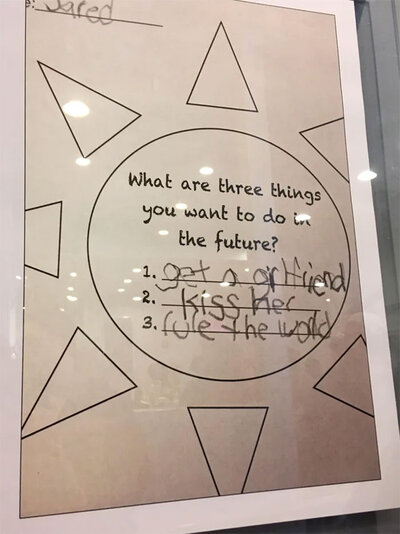 e: Jared
What are three things
you want to do in
the future?
1. get a girlfriend
2. kiss her
3. rule the world